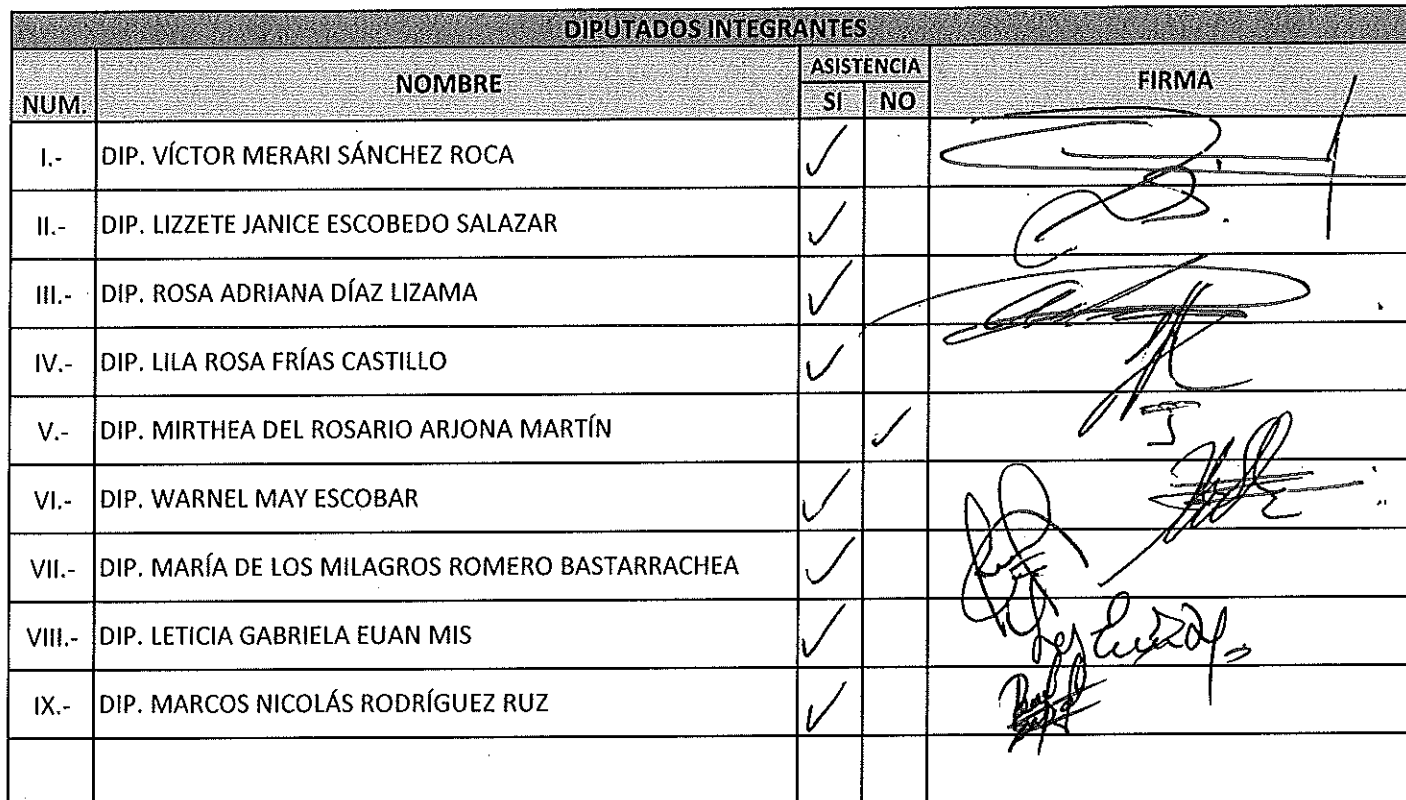 DIPUTADOS INTEGRANTES
NUM. NOMBRE ASISTENCIA FIRMA
SI NO
I.- DIP. VÍCTOR MERARI SÁNCHEZ ROCA ✓
II.- DIP. LIZZETE JANICE ESCOBEDO SALAZAR ✓
III.- DIP. ROSA ADRIANA DÍAZ LIZAMA ✓
IV.- DIP. LILA ROSA FRÍAS CASTILLO ✓
V.- DIP. MIRTHEA DEL ROSARIO ARJONA MARTÍN ✓
VI.- DIP. WARNEL MAY ESCOBAR ✓
VII.- DIP. MARÍA DE LOS MILAGROS ROMERO BASTARRACHEA ✓
VIII.- DIP. LETICIA GABRIELA EUAN MIS ✓
IX.- DIP. MARCOS NICOLÁS RODRÍGUEZ RUZ ✓